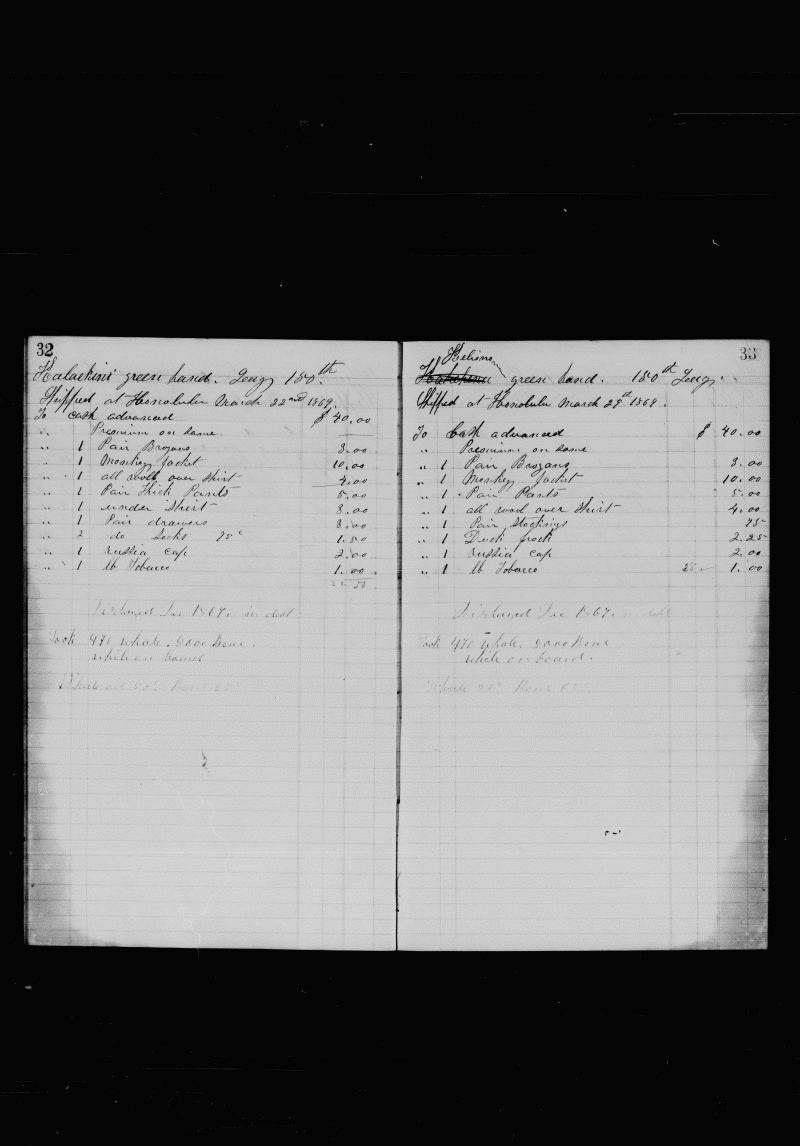 32
Kalaekini green hand. Leugy 180th
Shipped at Honolulu March 22nd 1869.
To cash advanced $ 40.00
" Premium on same
" 1 Pair Brogans 3.00
" 1 Monkey Jacket 10.00
" 1 all wool over Shirt 4.00
" 1 Pair Thick Pants 5.00
" 1 under Shirt 3.00
" 1 Pair drawers 3.00
" 2 do Socks 75c 1.50
" 1 russia cap 2.00
" 1 lb Tobacco 1.00
Discharged Dec 1869. in debt
Took 470 whale. 5000 Bone.
while on board
Whale oil Bone
33
green hand. 180th
Shipped at Honolulu March 29th 1869.
To Cash advanced $ 40.00
" Premium on same
" 1 Pair Brogans 3.00
" 1 Monkey Jacket 10.00
" 1 Pair Pants 5.00
" 1 all wool over Shirt 4.00
" 1 Pair Stockings 75
" 1 Duck frock 2.25
" 1 russia cap 2.00
" 1 lb Tobacco 1.00
Discharged Dec 1869. in debt
Took 470 whale. 5000 Bone
while on board.
Whale Bone